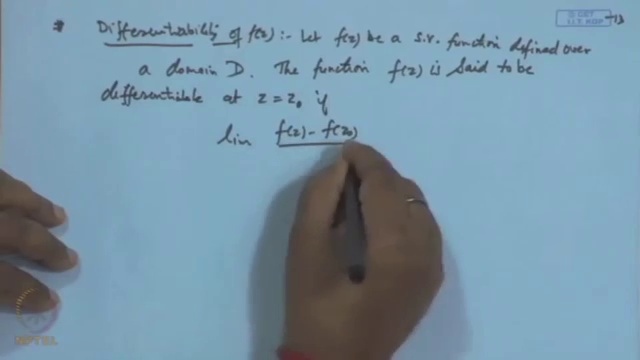 * Differentiability of f(z) :- Let f(z) be a s.v. function defined over
a domain D. The function f(z) is said to be
differentiable at z = z₀ if
lim f(z) - f(z₀)
© CET
I.I.T. KGP
NPTEL